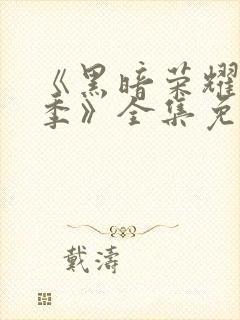 《黑暗荣耀
季》全集免
戴濤